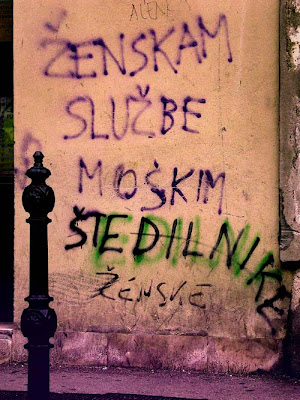 ALENA
ŽENSKAM
SLUŽBE
MOŠKIM
ŠTEDILNIKE
ŽENSKE